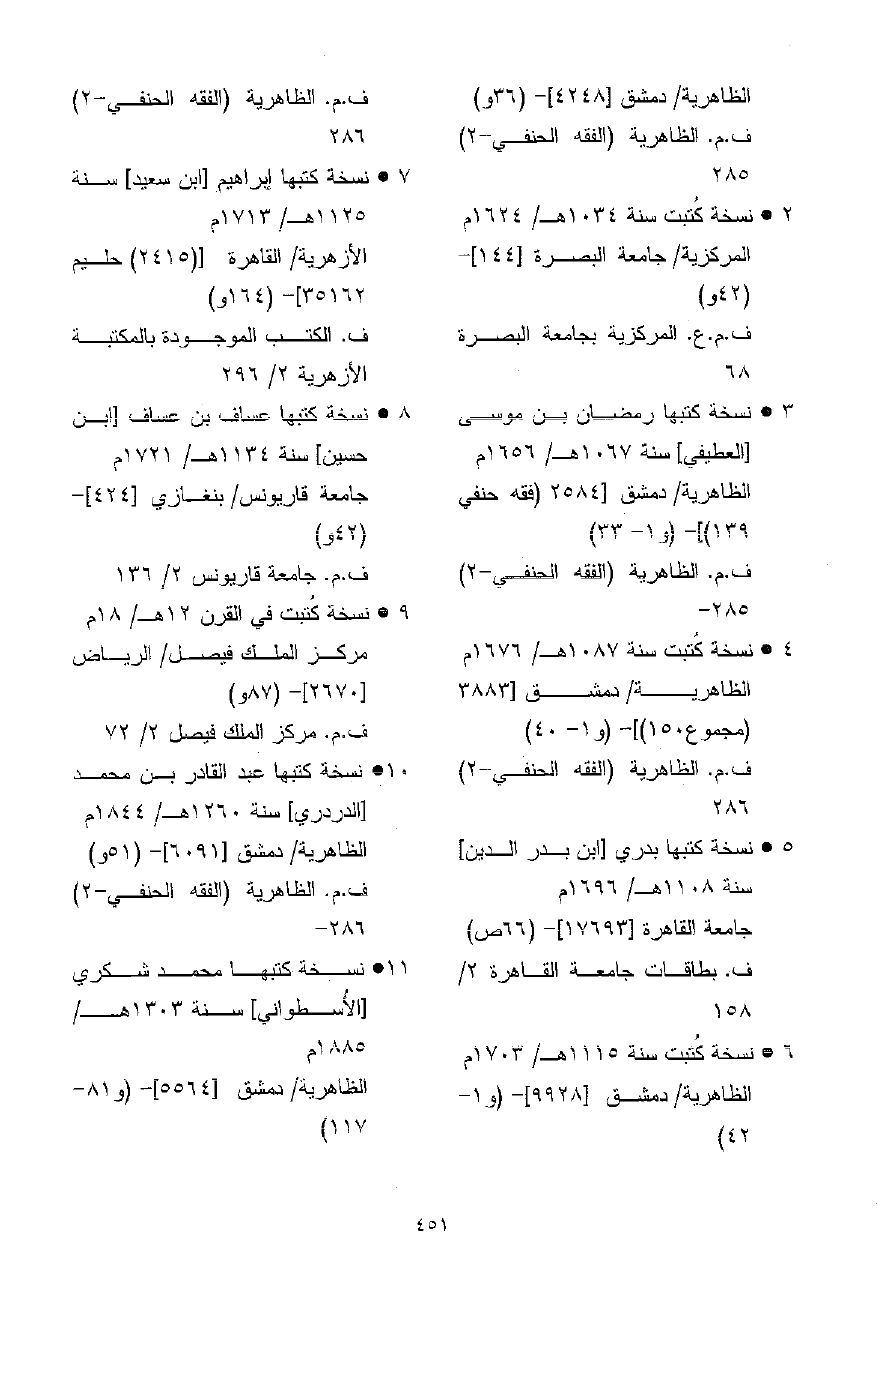 الظاهرية/ دمشق [٤٢٤٨]- (٣٦و)
ف.م. الظاهرية (الفقه الحنفي-٢)
٢٨٥
٢ • نسخة كُتبت سنة ١٠٣٤هـ/ ١٦٢٤م
المركزية/ جامعة البصرة [١٤٤]-
(٤٢و)
ف.م.ع. المركزية بجامعة البصرة
٦٨
٣ • نسخة كتبها رمضان بن موسى
[العطيفي] سنة ١٠٦٧هـ/ ١٦٥٦م
الظاهرية/ دمشق [٢٥٨٤ (فقه حنفي
١٣٩)]- (و١- ٣٣)
ف.م. الظاهرية (الفقه الحنفي-٢)
٢٨٥-
٤ • نسخة كُتبت سنة ١٠٨٧هـ/ ١٦٧٦م
الظاهرية/ دمشق [٣٨٨٣
(مجموع١٥٠)]- (و١- ٤٠)
ف.م. الظاهرية (الفقه الحنفي-٢)
٢٨٦
٥ • نسخة كتبها بدري [ابن بدر الدين]
سنة ١١٠٨هـ/ ١٦٩٦م
جامعة القاهرة [١٧٦٩٣]- (٦٦ص)
ف. بطاقات جامعة القاهرة ٢/
١٥٨
٦ • نسخة كُتبت سنة ١١١٥هـ/ ١٧٠٣م
الظاهرية/ دمشق [٩٩٢٨]- (و١-
٤٢)
ف.م. الظاهرية (الفقه الحنفي-٢)
٢٨٦
٧ • نسخة كتبها إبراهيم [ابن سعيد] سنة
١١٢٥هـ/ ١٧١٣م
الأزهرية/ القاهرة [(٢٤١٥) حليم
٣٥١٦٢]- (١٦٤و)
ف. الكتب الموجودة بالمكتبة
الأزهرية ٢/ ٢٩٦
٨ • نسخة كتبها عساف بن عساف [ابن
حسين] سنة ١١٣٤هـ/ ١٧٢١م
جامعة قاريونس/ بنغازي [٤٢٤]-
(٤٢و)
ف.م. جامعة قاريونس ٢/ ١٣٦
٩ • نسخة كُتبت في القرن ١٢هـ/ ١٨م
مركز الملك فيصل/ الرياض
[٢٦٧٠]- (٨٧و)
ف.م. مركز الملك فيصل ٢/ ٧٢
١٠• نسخة كتبها عبد القادر بن محمد
[الدردري] سنة ١٢٦٠هـ/ ١٨٤٤م
الظاهرية/ دمشق [٦٠٩١]- (٥١و)
ف.م. الظاهرية (الفقه الحنفي-٢)
٢٨٦-
١١• نسخة كتبها محمد شكري
[الأُسطواني] سنة ١٣٠٣هـ/
١٨٨٥م
الظاهرية/ دمشق [٥٥٦٤]- (و٨١-
١١٧)
٤٥١